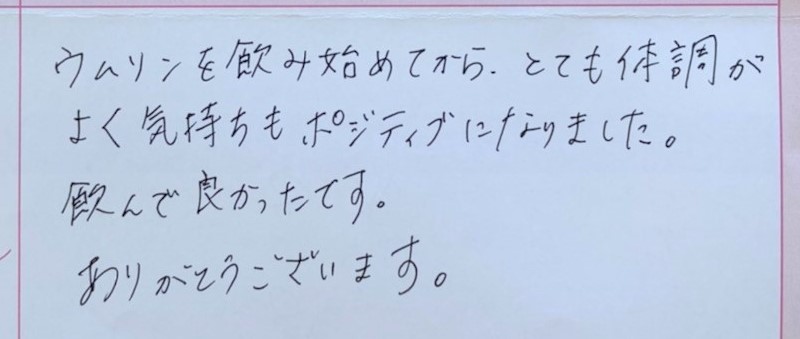 ウムリンを飲み始めてから、とても体調が
よく気持ちもポジティブになりました。
飲んで良かったです。
ありがとうございます。